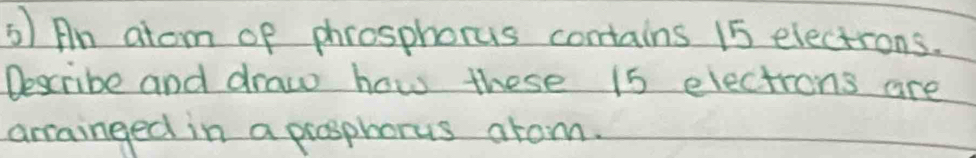 5) An atom of phrosphorus contains 15 electrons.
Describe and draw how these 15 electrons are
arrainged in a prosphorus atom.